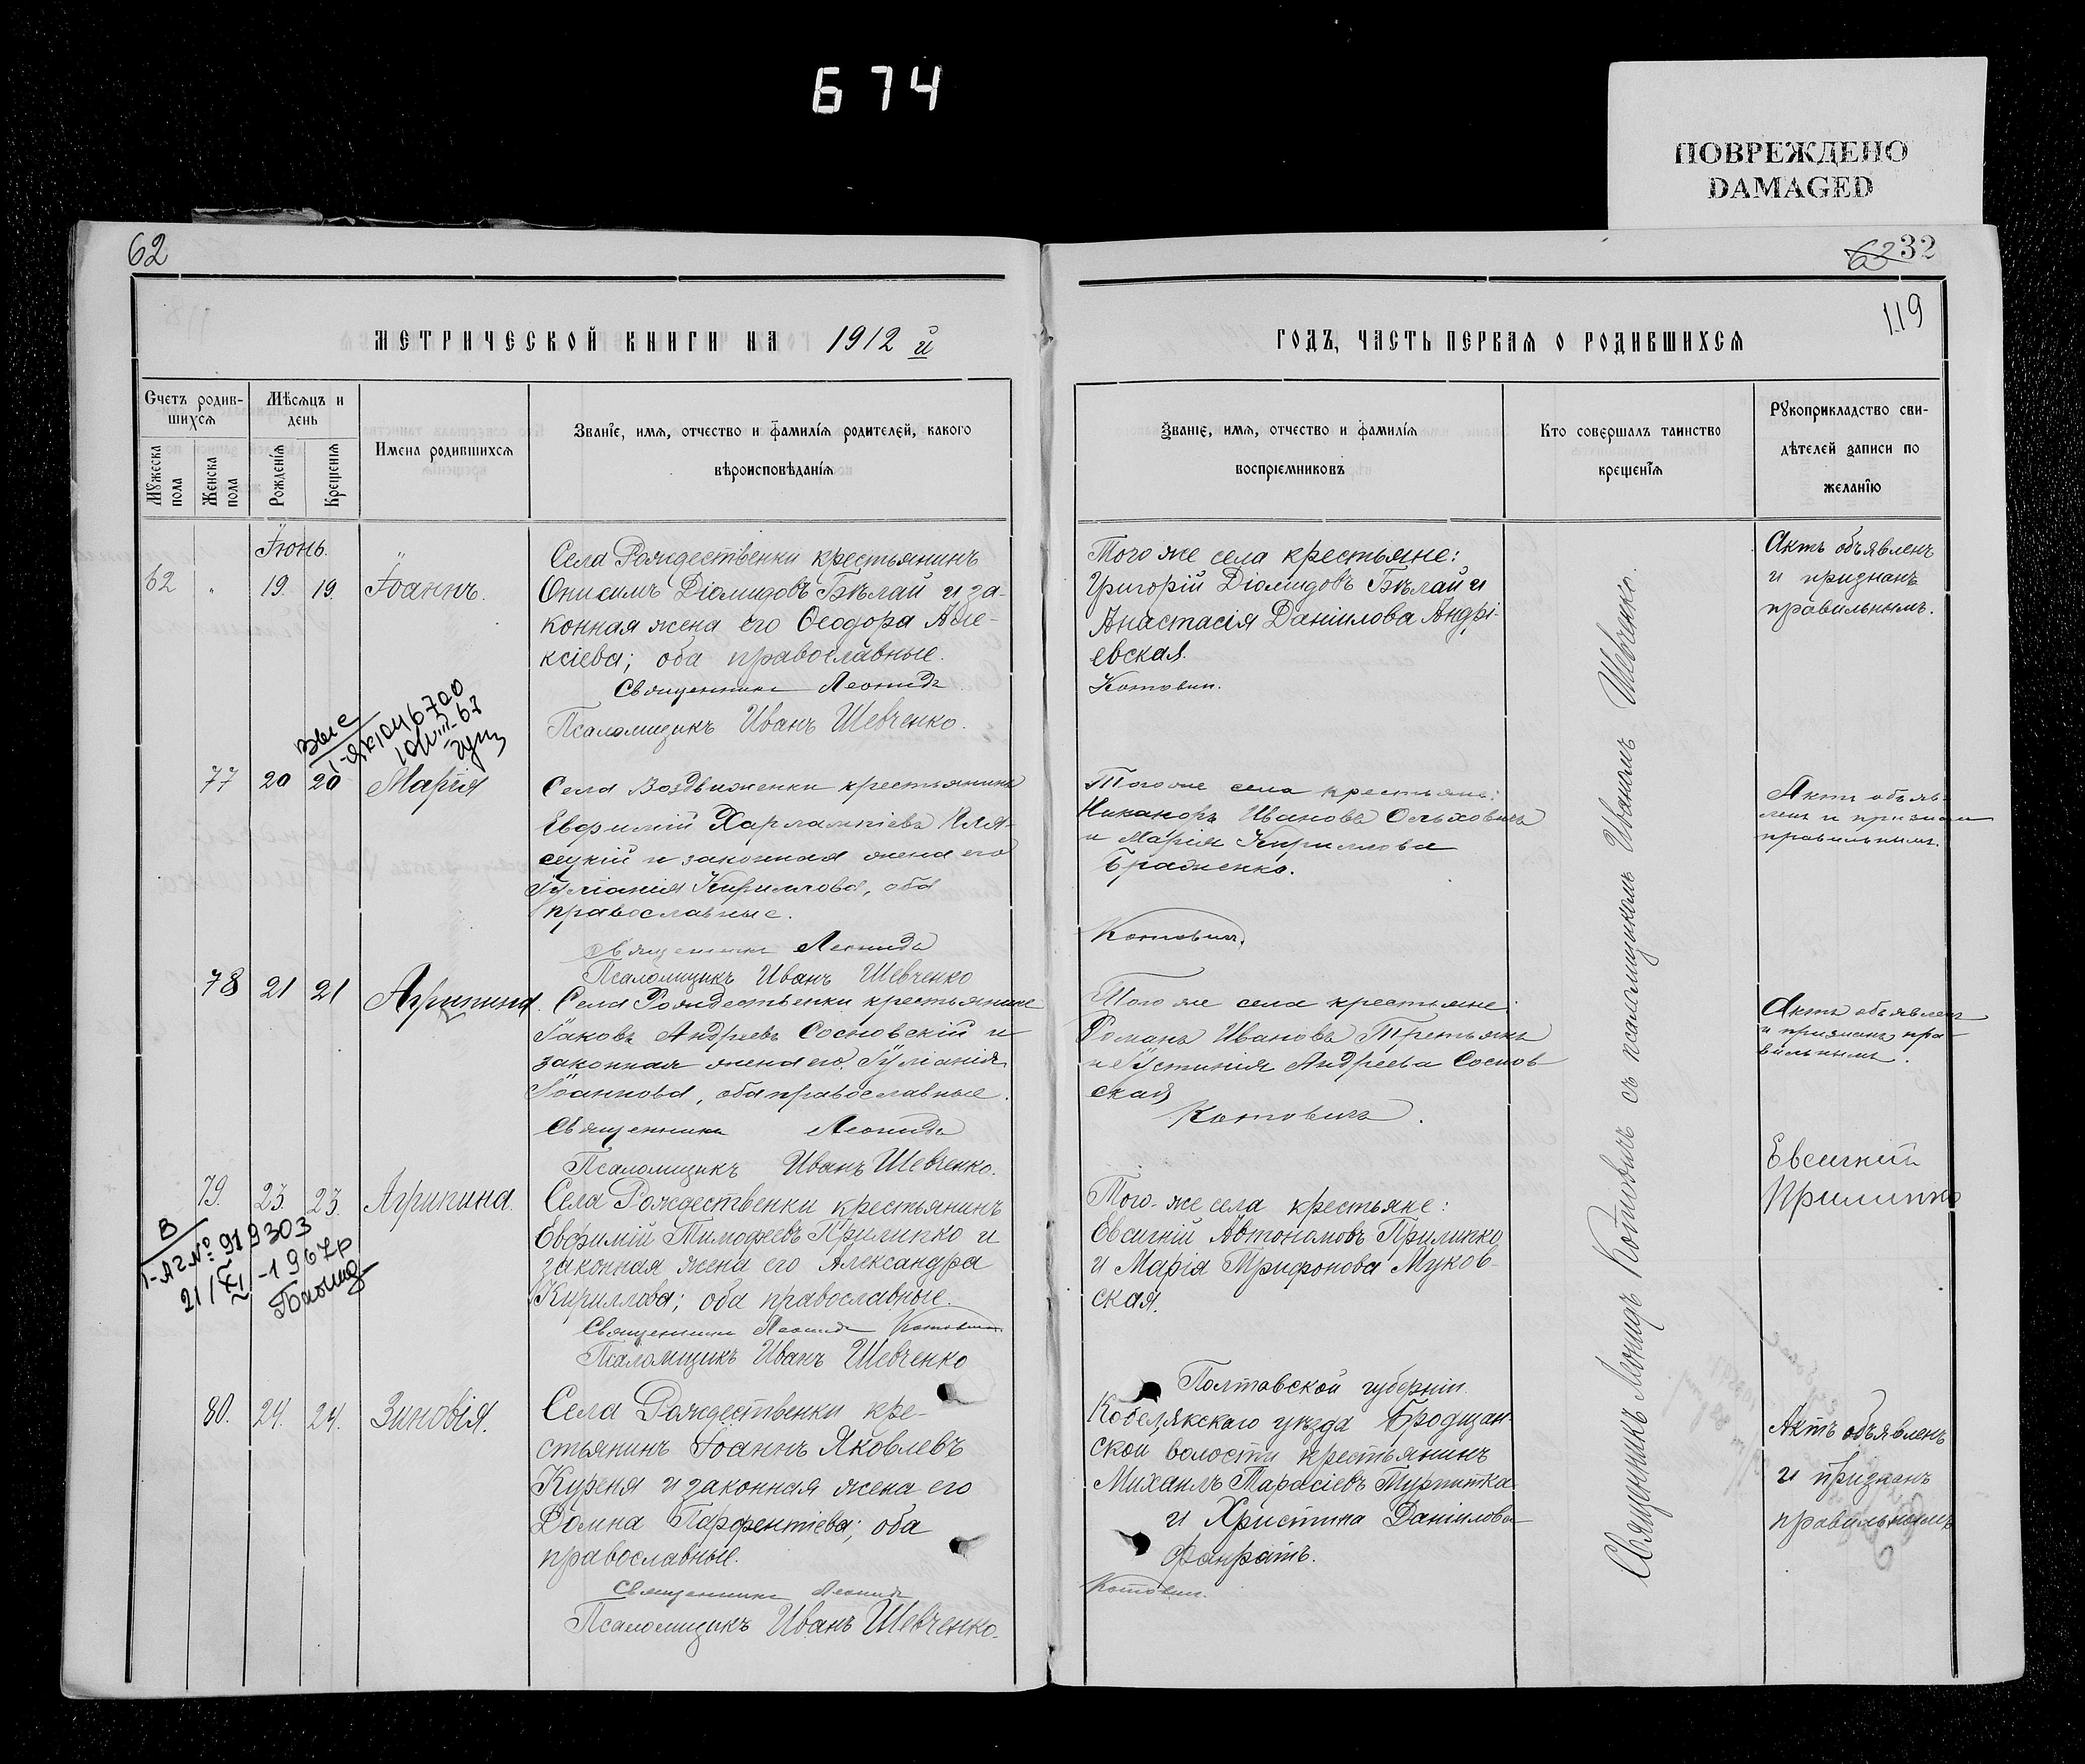 674
ПОВРЕЖДЕНО
DAMAGED
62
63 32
119
МЕТРИЧЕСКОЙ КНИГИ НА 1912 й
ГОДЪ, ЧАСТЬ ПЕРВАЯ О РОДИВШИХСЯ
Счетъ родив-
шихся
Мѣсяцъ и
день
Мужеска
пола
Женска
пола
Рожденія
Крещенія
Имена родившихся
Званіе, имя, отчество и фамилія родителей, какого
вѣроисповѣданія
Званіе, имя, отчество и фамилія
воспріемниковъ
Кто совершалъ таинство
крещенія
Рукоприкладство сви-
дѣтелей записи по
желанію
Іюнь.
62 " 19. 19. Іоаннъ.
Села Рождественки крестьянинъ
Онисимъ Діомидовъ Бѣлай и за-
конная жена его Ѳеодора Але-
ксіева; оба православные.
Священникъ Леонидъ
Псаломщикъ Иванъ Шевченко.
Того же села крестьяне:
Григорій Діомидовъ Бѣлай и
Анастасія Даніилова Андрі-
евская.
Котовичъ.
Актъ объявленъ
и признанъ
правильнымъ.
77 20 20 Марія
Села Воздвиженки крестьянинъ
Евфимій Харлампіевъ
и законная жена его
Іуліанія Кириллова, оба
православные.
Священникъ Леонидъ
Псаломщикъ Иванъ Шевченко
Того же села крестьяне:
Никаноръ Ивановъ Ольховикъ
и Марія Кириллова
Браженко.
Котовичъ.
Актъ объяв-
ленъ и признанъ
правильнымъ.
78 21 21 Агрипина.
Села Рождественки крестьянинъ
Іаковъ Андреевъ Сосновскій и
законная жена его Іуліанія
Іоаннова, оба православные.
Священникъ Леонидъ
Псаломщикъ Иванъ Шевченко.
Того же села крестьяне:
Романъ Ивановъ Третьякъ
и Іустинія Андреева Соснов-
ская
Котовичъ.
Актъ объявленъ
и признанъ пра
вильнымъ.
79. 23. 23. Агрипина.
В
I-АГ № 919303
21/XI-1967р
Села Рождественки крестьянинъ
Евфимій Тимофеевъ Прилипко и
законная жена его Александра
Кириллова; оба православные.
Священникъ Леонидъ Котовичъ
Псаломщикъ Иванъ Шевченко
Того-же села крестьяне:
Евсигній Автономовъ Прилипко
и Марія Трифонова Муков-
ская.
Евсигній
Прилипко
80. 24. 24. Зиновія.
Села Рождественки кре-
стьянинъ Іоаннъ Яковлевъ
Куреня и законная жена его
Домна Парфентіева; оба
православные.
Священникъ Леонидъ
Псаломщикъ Иванъ Шевченко.
Полтавской губерніи
Кобелякскаго уѣзда Бродщан-
ской волости крестьянинъ
Михаилъ Тарасіевъ
и Христина Даніилова
Котовичъ.
Актъ объявленъ
и признанъ
правильнымъ
Священникъ Леонидъ Котовичъ съ псаломщикомъ Иваномъ Шевченко.